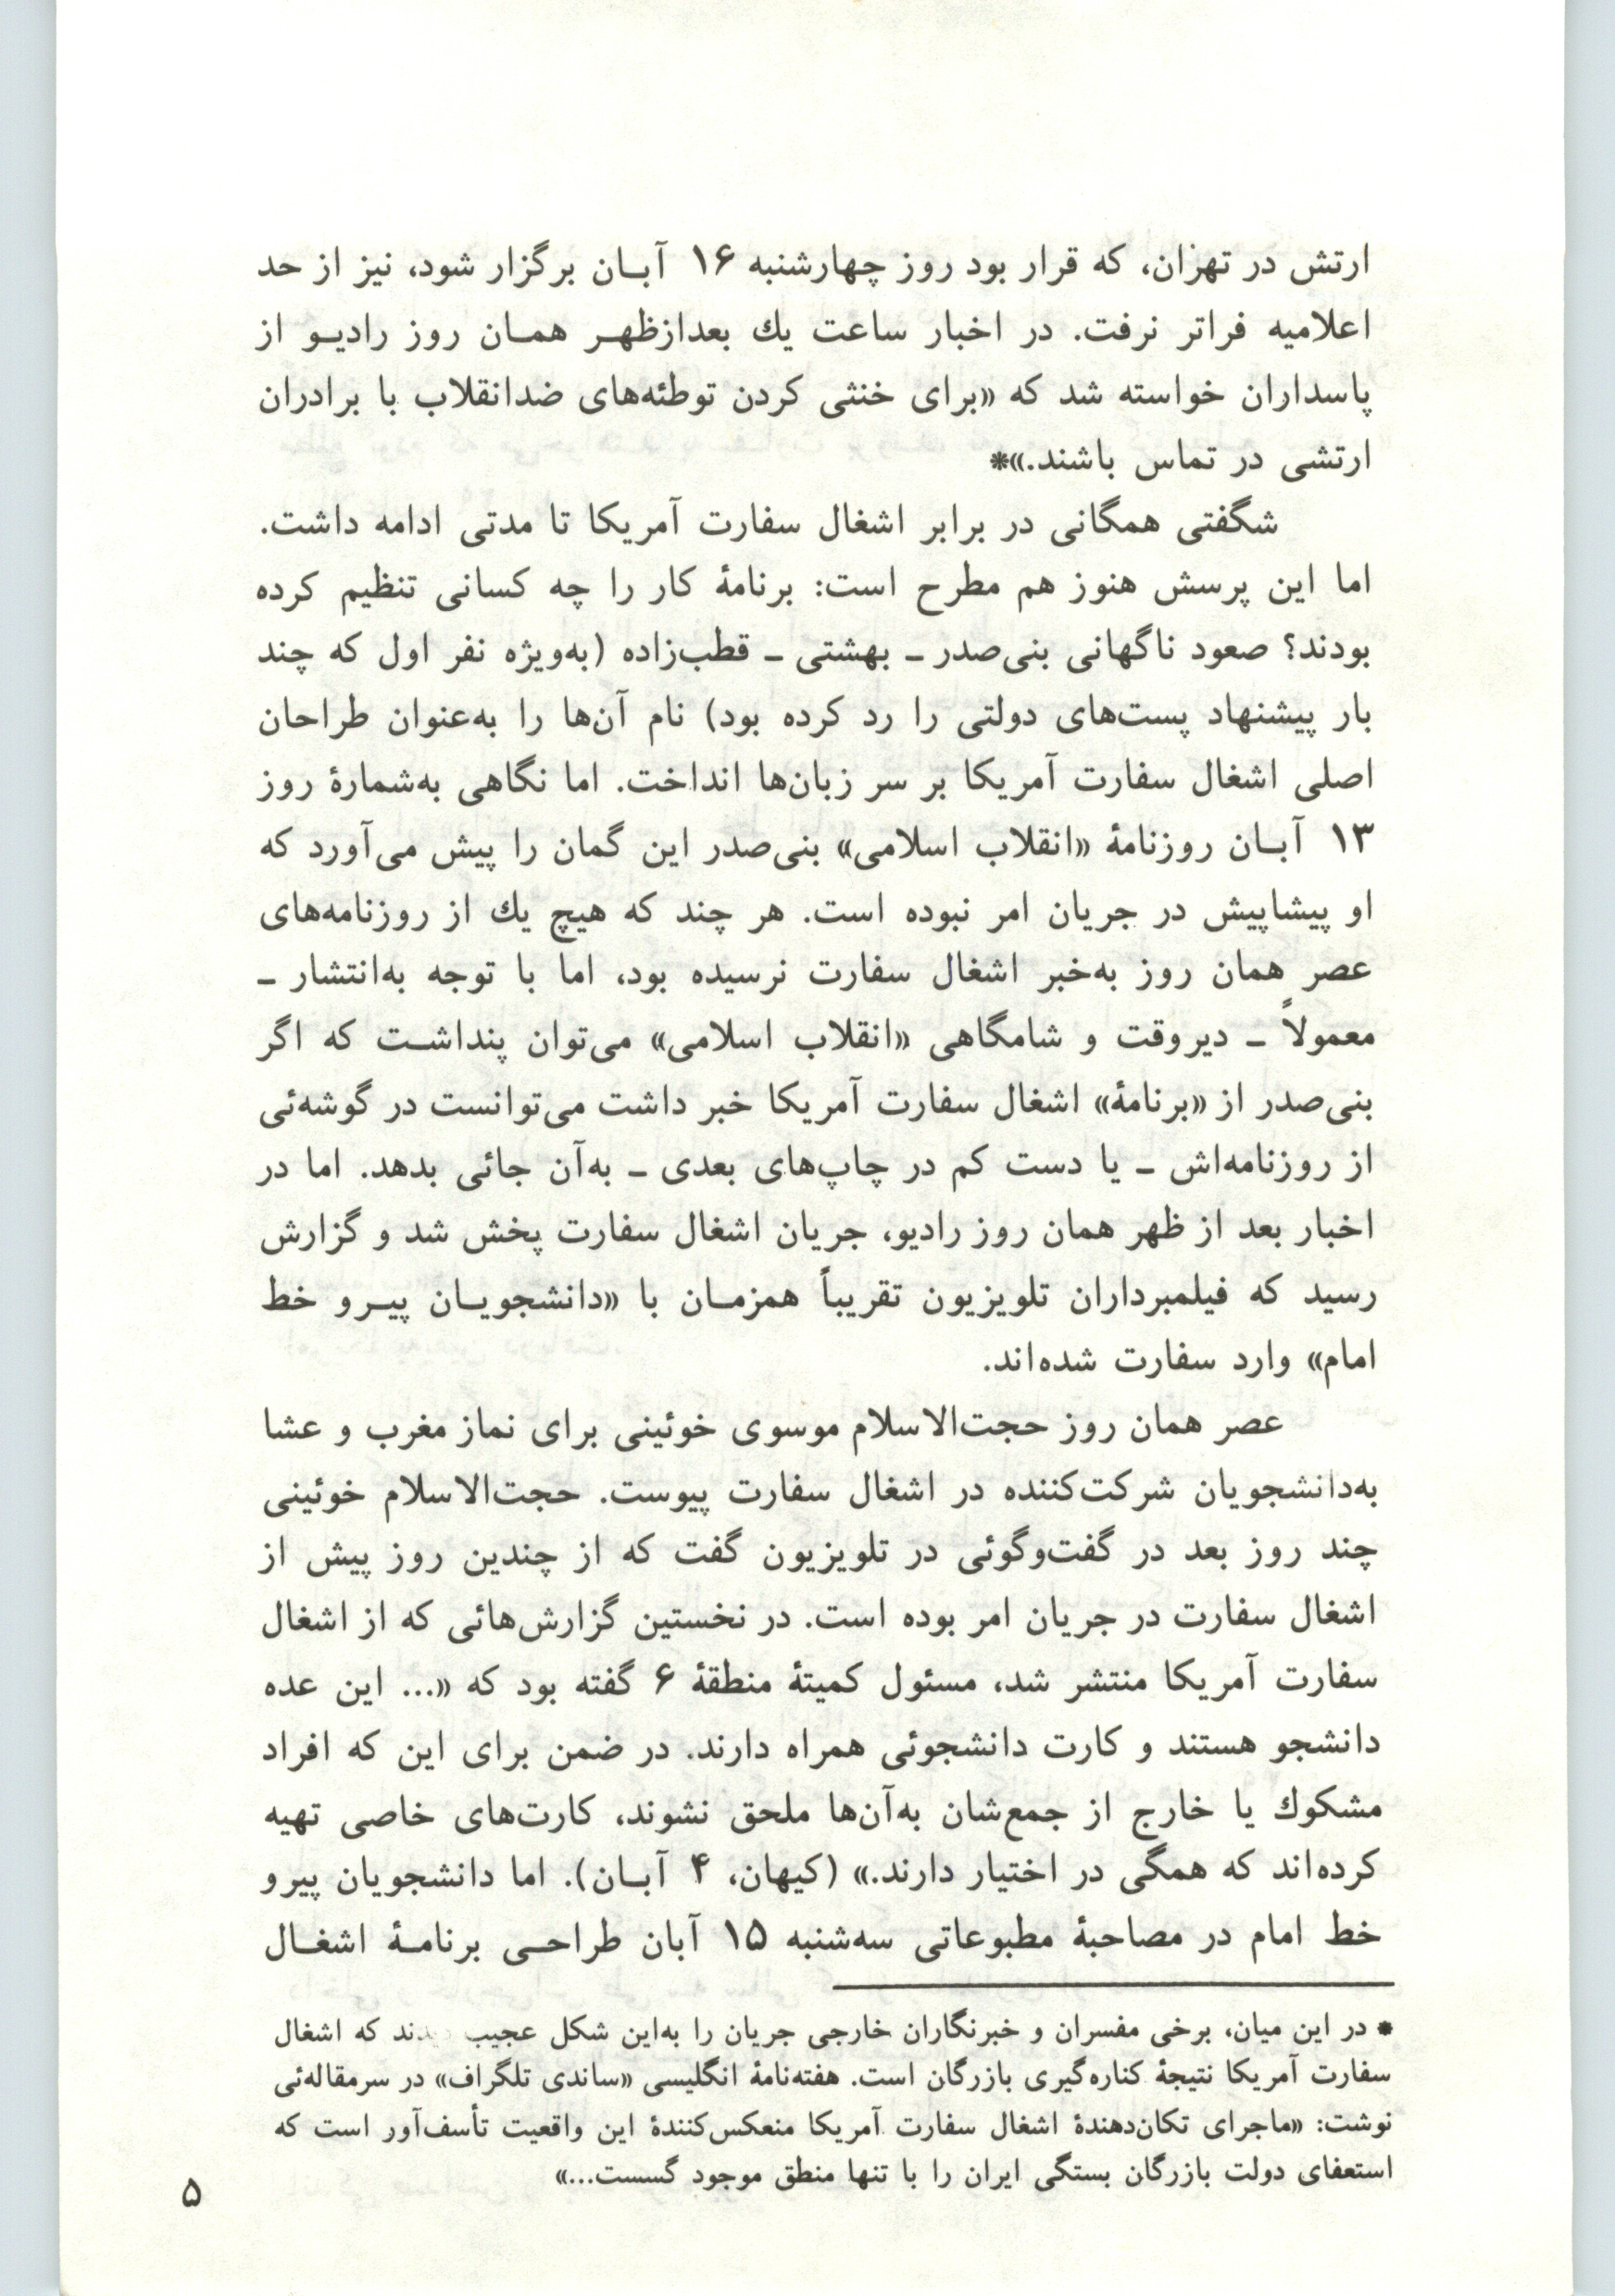 ارتش در تهران، که قرار بود روز چهارشنبه ۱۶ آبـان برگزار شود، نیز از حد
اعلامیه فراتر نرفت. در اخبار ساعت یك بعدازظهـر همـان روز رادیـو از
پاسداران خواسته شد که «برای خنثی کردن توطئه‌های ضدانقلاب با برادران
ارتشی در تماس باشند.»*
شگفتی همگانی در برابر اشغال سفارت آمریکا تا مدتی ادامه داشت.
اما این پرسش هنوز هم مطرح است: برنامهٔ کار را چه کسانی تنظیم کرده
بودند؟ صعود ناگهانی بنی‌صدر ـ بهشتی ـ قطب‌زاده (به‌ویژه نفر اول که چند
بار پیشنهاد پست‌های دولتی را رد کرده بود) نام آن‌ها را به‌عنوان طراحان
اصلی اشغال سفارت آمریکا بر سر زبان‌ها انداخت. اما نگاهی به‌شمارهٔ روز
۱۳ آبـان روزنامهٔ «انقلاب اسلامی» بنی‌صدر این گمان را پیش می‌آورد که
او پیشاپیش در جریان امر نبوده است. هر چند که هیچ یك از روزنامه‌های
عصر همان روز به‌خبر اشغال سفارت نرسیده بود، اما با توجه به‌انتشار ـ
معمولاً ـ دیروقت و شامگاهی «انقلاب اسلامی» می‌توان پنداشـت که اگر
بنی‌صدر از «برنامهٔ» اشغال سفارت آمریکا خبر داشت می‌توانست در گوشه‌ئی
از روزنامه‌اش ـ یا دست کم در چاپ‌های بعدی ـ به‌آن جائی بدهد. اما در
اخبار بعد از ظهر همان روز رادیو، جریان اشغال سفارت پخش شد و گزارش
رسید که فیلمبرداران تلویزیون تقریباً همزمـان با «دانشجویـان پیـرو خط
امام» وارد سفارت شده‌اند.
عصر همان روز حجت‌الاسلام موسوی خوئینی برای نماز مغرب و عشا
به‌دانشجویان شرکت‌کننده در اشغال سفارت پیوست. حجت‌الاسلام خوئینی
چند روز بعد در گفت‌وگوئی در تلویزیون گفت که از چندین روز پیش از
اشغال سفارت در جریان امر بوده است. در نخستین گزارش‌هائی که از اشغال
سفارت آمریکا منتشر شد، مسئول کمیتهٔ منطقهٔ ۶ گفته بود که «... این عده
دانشجو هستند و کارت دانشجوئی همراه دارند. در ضمن برای این که افراد
مشکوك یا خارج از جمع‌شان به‌آن‌ها ملحق نشوند، کارت‌های خاصی تهیه
کرده‌اند که همگی در اختیار دارند.» (کیهان، ۴ آبـان). اما دانشجویان پیرو
خط امام در مصاحبهٔ مطبوعاتی سه‌شنبه ۱۵ آبان طراحـی برنامـهٔ اشغـال
* در این میان، برخی مفسران و خبرنگاران خارجی جریان را به‌این شکل عجیب که اشغال
سفارت آمریکا نتیجهٔ کناره‌گیری بازرگان است. هفته‌نامهٔ انگلیسی «ساندی تلگراف» در سرمقاله‌ئی
نوشت: «ماجرای تکان‌دهندهٔ اشغال سفارت آمریکا منعکس‌کنندهٔ این واقعیت تأسف‌آور است که
استعفای دولت بازرگان بستگی ایران را با تنها منطق موجود گسست...»
۵